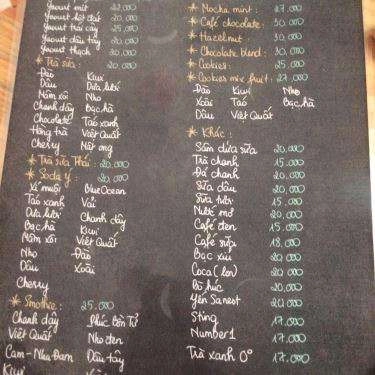 Yaourt mít 22.000
Yaourt hột dát 20.000
Yaourt trái cây 25.000
Yaourt dâu tây 20.000
Yaourt thạch 20.000
* Trà sữa : 20.000
Đào Kiwi
Dâu Dưa lưới
Mâm xôi Nho
Chanh dây Bạc hà
Chocolate Táo xanh
Hồng trà Việt Quất
Cherry Mật ong
* Trà sữa Thái : 20.000
* Soda Ý : 20.000
Xí muội Blue Ocean
Táo xanh Vải
Dưa lưới Chanh dây
Bạc hà Kiwi
Mâm xôi Việt Quất
Nho Đào
Dâu Xoài
Cherry
* Smothie : 25.000
Chanh dây Phúc Bồn Tử
Việt Quất Nho đen
Cam - Nha Đam Dâu tây
Kiwi Việt Quất
* Mocha mint : 27.000
* Café chocolate : 30.000
* Hazelnut : 30.000
* Chocolate blend : 30.000
* Cookies : 25.000
* Cookies mix fruit : 27.000
Đào Kiwi Nho
Xoài Táo Bạc hà
Dâu Việt Quất
* Khác :
Sâm dứa sữa 20.000
Trà chanh 15.000
Đá chanh 20.000
Sữa dâu 20.000
Sữa tươi 15.000
Nước mơ 20.000
Café đen 15.000
Café sữa 18.000
Bạc xỉu 20.000
Coca (lon) 20.000
Bò húc 20.000
Yến Sanest 20.000
Sting 17.000
Number 1 17.000
Trà xanh 0° 17.000